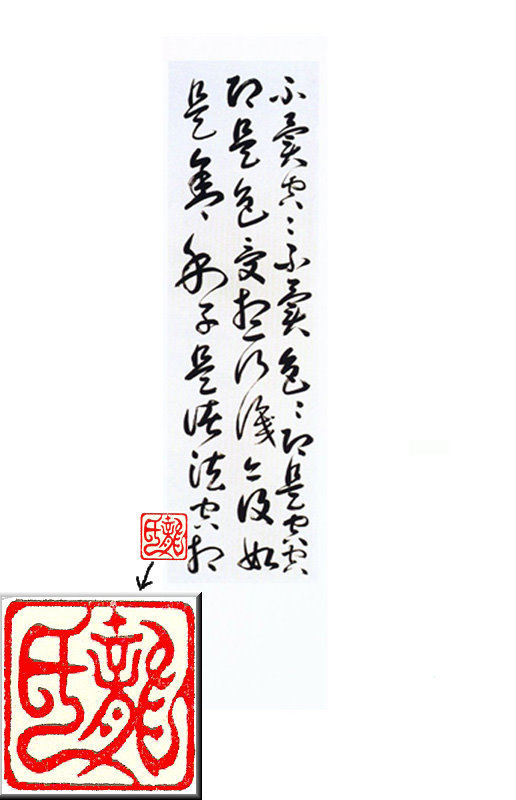 不異空〻不異色〻即是空空
即是色受想行識亦復如
是舍利子是諸法空相
龍氏
龍氏